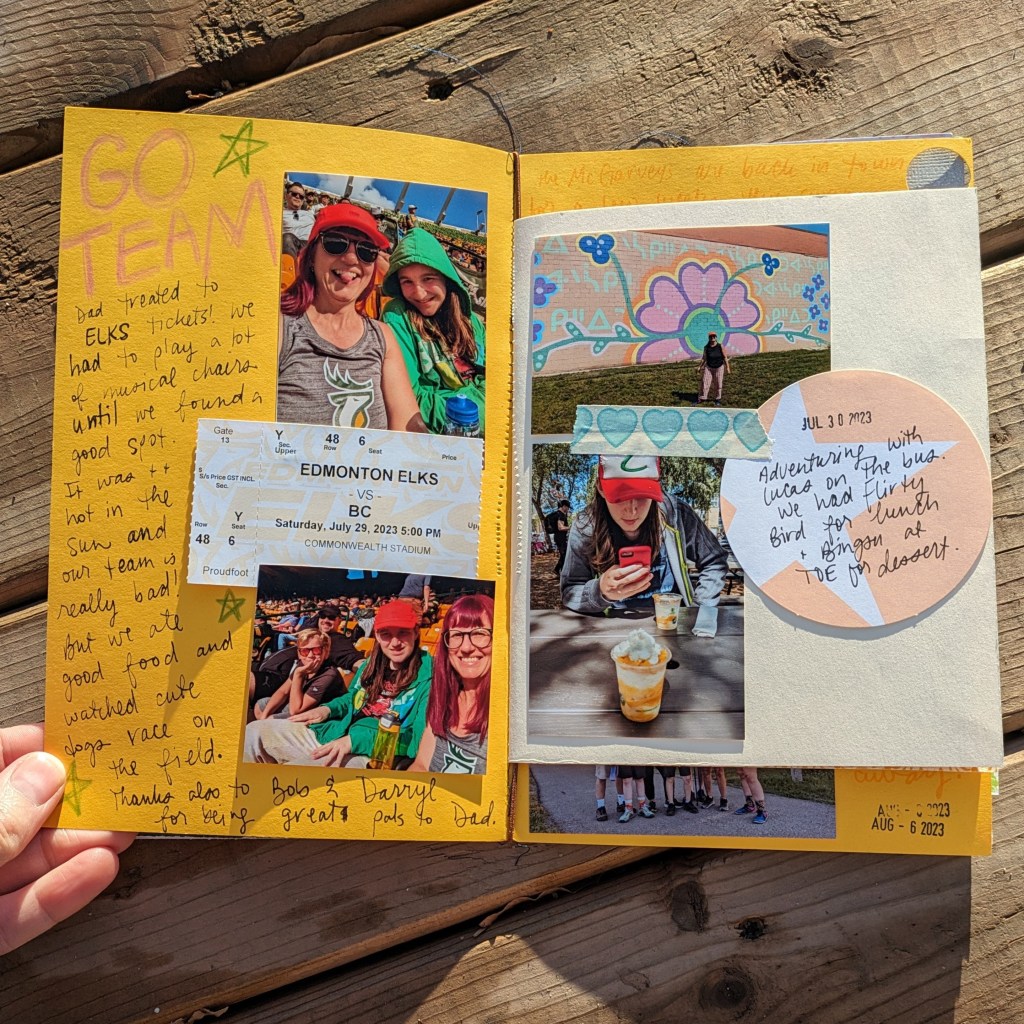 GO
TEAM
Dad treated to
ELKS tickets! We
had to play a lot
of musical chairs
until we found a
good spot.
It was ++
hot in the
sun and
our team is
really bad!
But we ate
good food and
watched cute
dogs race on
the field.
Thanks also to Bob & Darryl
for being great pals to Dad.
Gate
13
Y
Sec.
Upper
48
Row
6
Seat
Price
S/s Price GST INCL
Sec.
EDMONTON ELKS
- VS -
BC
Saturday, July 29, 2023 5:00 PM
COMMONWEALTH STADIUM
Row
48
Y
Seat
6
Proudfoot
the McGarveys are back in town
for a
JUL 30 2023
Adventuring with
Lucas on the bus.
We had Flirty
Bird for lunch
+ Bingsu at
TOE for dessert.
AUG - 6 2023
AUG - 6 2023